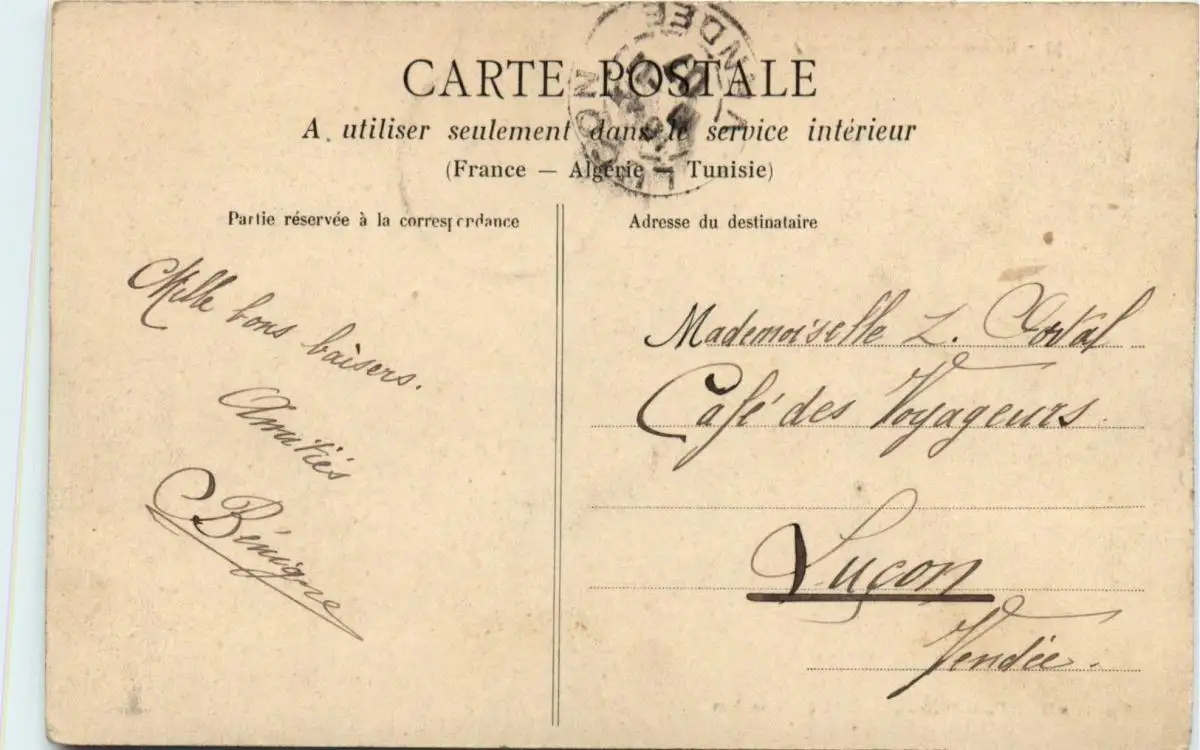 CARTE POSTALE
A utiliser seulement dans le service intérieur
(France — Algérie — Tunisie)
Partie réservée à la correspondance
Adresse du destinataire
Mille bons baisers.
Amitiés
Bénigne
Mademoiselle L.
Café des Voyageurs
Luçon
Vendée.
LUÇON
VENDÉE